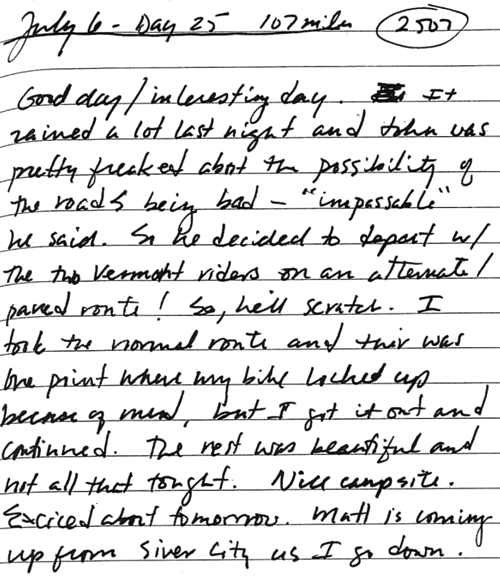 July 6 - Day 25 107 miles 2507
Good day/interesting day. It
rained a lot last night and John was
pretty freaked about the possibility of
the roads being bad - "impassable"
he said. So he decided to depart w/
the two Vermont riders on an alternate/
paved route! So, he'll scratch. I
took the normal route and their was
one point where my bike locked up
because of mud, but I got it out and
continued. The rest was beautiful and
not all that tought. Nice campsite.
Excited about tomorrow. Matt is coming
up from Siver City as I go down.